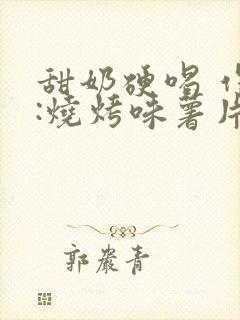 甜奶硬唱
:燒烤味薯片
郭嚴青